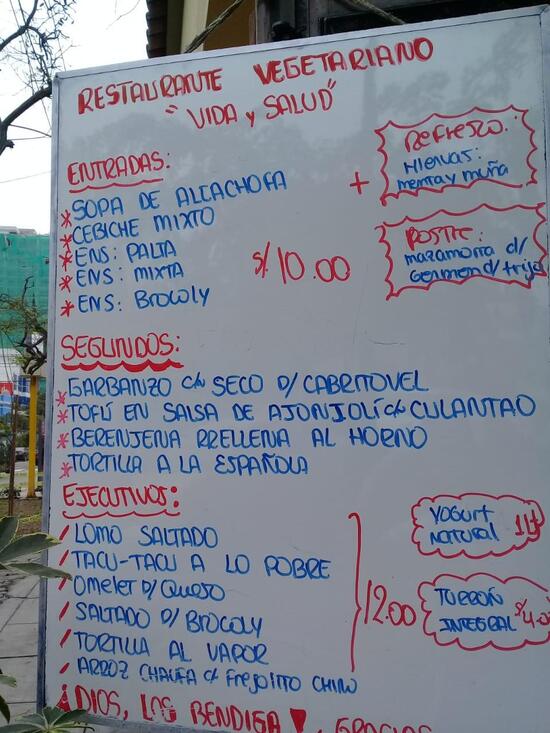 RESTAURANTE VEGETARIANO
"VIDA Y SALUD"
ENTRADAS:
* SOPA DE ALCACHOFA
* CEBICHE MIXTO
* ENS: PALTA
* ENS: MIXTA
* ENS: BROCOLY
S/. 10.00
+
REFRESCO:
HIERVAS:
menta y muña
POSTRE:
mazamorra d/
Germen d/ trigo
SEGUNDOS:
* GARBANZO c/u SECO D/ CABRITOVEL
* TOFÚ EN SALSA DE AJONJOLÍ c/u CULANTAO
* BERENJENA RRELLENA AL HORNO
* TORTILLA A LA ESPAÑOLA
EJECUTIVOS:
/ LOMO SALTADO
/ TACU-TACU A LO POBRE
/ OMELET D/ QUESO
/ SALTADO D/ BROCOLY
/ TORTILLA AL VAPOR
/ ARROZ CHAUFA c/ FREJOLITO CHINO
12.00
YOGURT
NATURAL 1Lt
TURRÓN
INTEGRAL S/4.0
¡DIOS, LOS BENDIGA!, GRACIAS